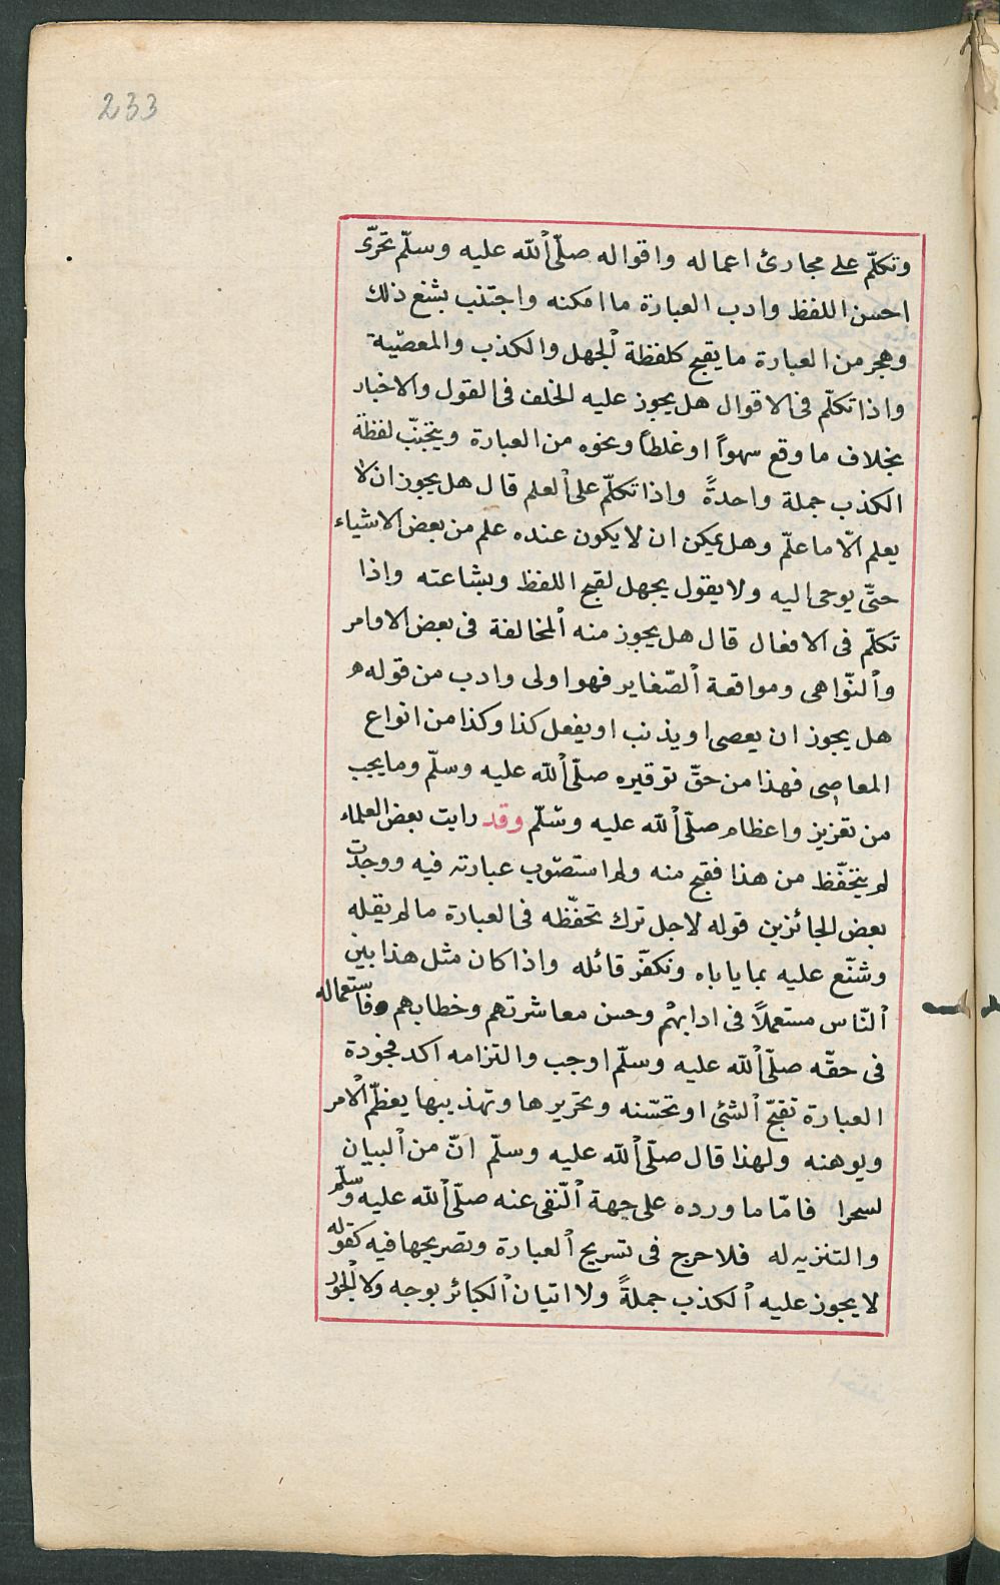 233
وتكلّم على مجارئ اعماله واقواله صلّى ٱللّه عليه وسلّم تحرّى
احسن اللفظ وادب العبارة ما امكنه واجتنب بشنع ذلك
وهجر من العبارة ما يقبح كلفظة ٱلجهل والكذب والمعصّية
واذا تكلّم فى الاقوال هل يجوز عليه الخلف فى القول والاخبار
بخلاف ما وقع سهواً او غلطاً ونحوه من العبارة ويتجنّب لفظة
الكذب جملة واحدةً واذا تكلّم على ٱلعلم قال هل يجوز ان لا
يعلم الّا ما علّم وهل يمكن ان لا يكون عنده علم من بعض الاشياء
حتّى يوحى اليه ولا يقول يجهل لقبح اللفظ وبشاعته واذا
تكلّم فى الافعال قال هل يجوز منه ٱلمخالفة فى بعض الاوامر
وٱلنّواهى ومواقعة ٱلصّغاير فهو اولى وادب من قوله
هل يجوز ان يعصى او يذنب او يفعل كذا وكذا من انواع
المعاصى فهذا من حقّ توقيره صلّى ٱللّه عليه وسلّم وما يجب
من تعزيز واعظام صلّى ٱللّه عليه وسّلّم وقد رايت بعض العلماء
لم يتحفّظ من هذا فقبح منه ولم استصّوب عبارته فيه ووجدت
بعض الجائزين قوله لاجل ترك تحفّظه فى العبارة ما لم يقله
وشنّع عليه بما ياباه ونكفّر قائله واذا كان مثل هذا بين
ٱلنّاس مستعملاً فى ادابهم وحسن معاشرتهم وخطابهم فاستعماله
فى حقّه صلّى ٱللّه عليه وسلّم اوجب والتزامه اكد فجودة
العبارة تقبّح ٱلشئ او تحسّنه وتحريرها وتهذيبها يعظّم ٱلامر
ويوهنه ولهذا قال صلّى ٱللّه عليه وسلّم انّ من ٱلبيان
لسحرا فامّا ما ورده على جهة ٱلنّفى عنه صلّى ٱللّه عليه وسلّم
والتنزيه له فلا حرج فى تسريح ٱلعبارة وتصريحها فيه كقوله
لا يجوز عليه ٱلكذب جملةً ولا اتيان ٱلكبائر بوجه ولا ٱلجور